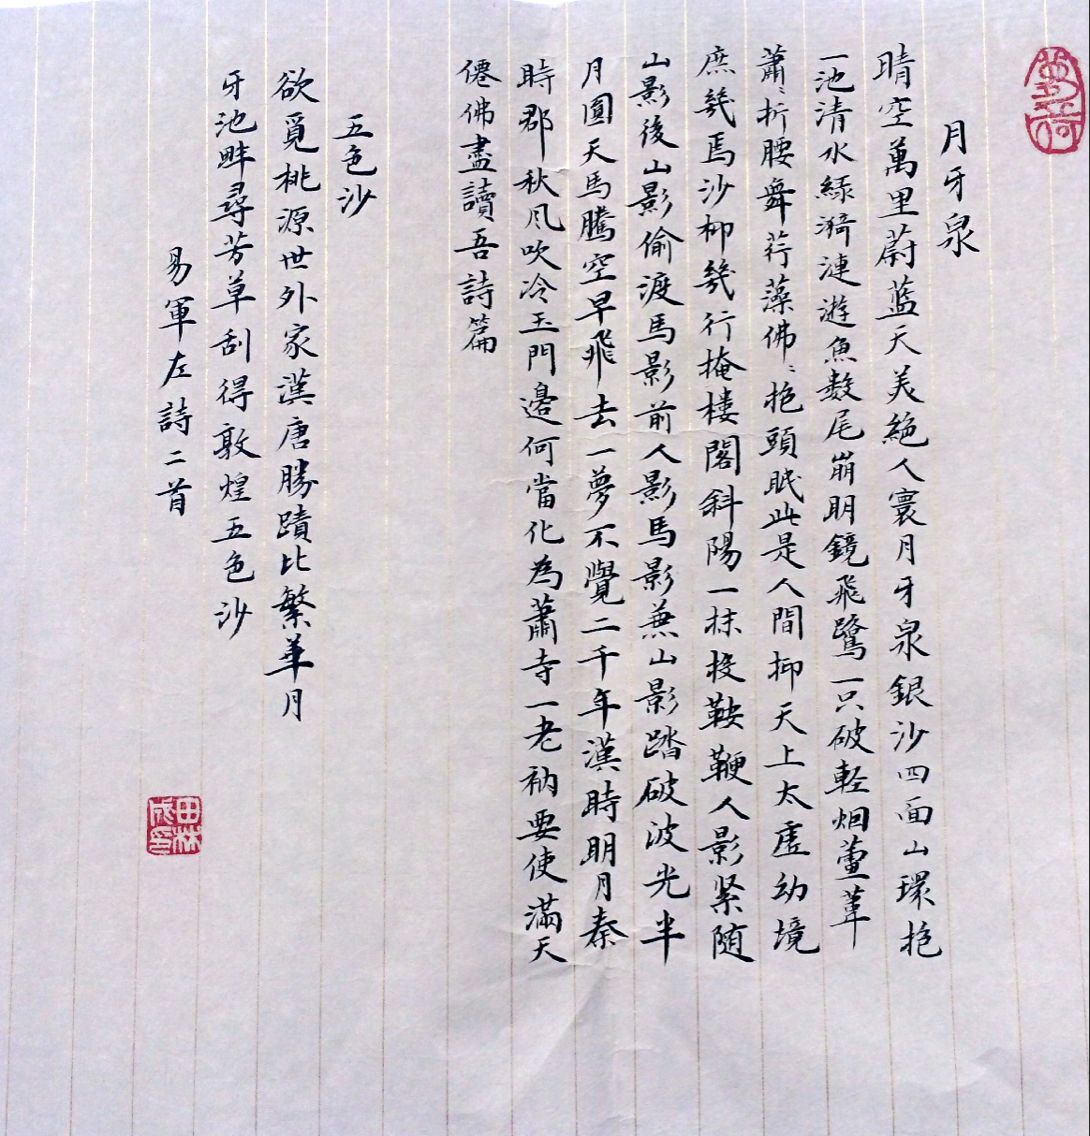 月牙泉
晴空萬里蔚蓝天美絶人寰月牙泉銀沙四面山環抱
一池清水緑漪漣遊魚数尾崩明鏡飛鷺一只破軽烟蘆葦
蕭〻折腰舞荇藻佛〻抱頭眠此是人間抑天上太虛幼境
庶幾焉沙柳幾行掩樓閣斜陽一抹投鞍鞭人影紧随
山影後山影偷渡馬影前人影馬影兼山影踏破波光半
月圓天馬騰空早飛去一夢不覺二千年漢時明月秦
時郡秋风吹冷玉門邊何當化為蕭寺一老衲要使滿天
僊佛盡讀吾詩篇
五色沙
欲覓桃源世外家漢唐勝蹟比繁華月
牙池畔尋芳草刮得敦煌五色沙
易軍左詩二首
田林成印